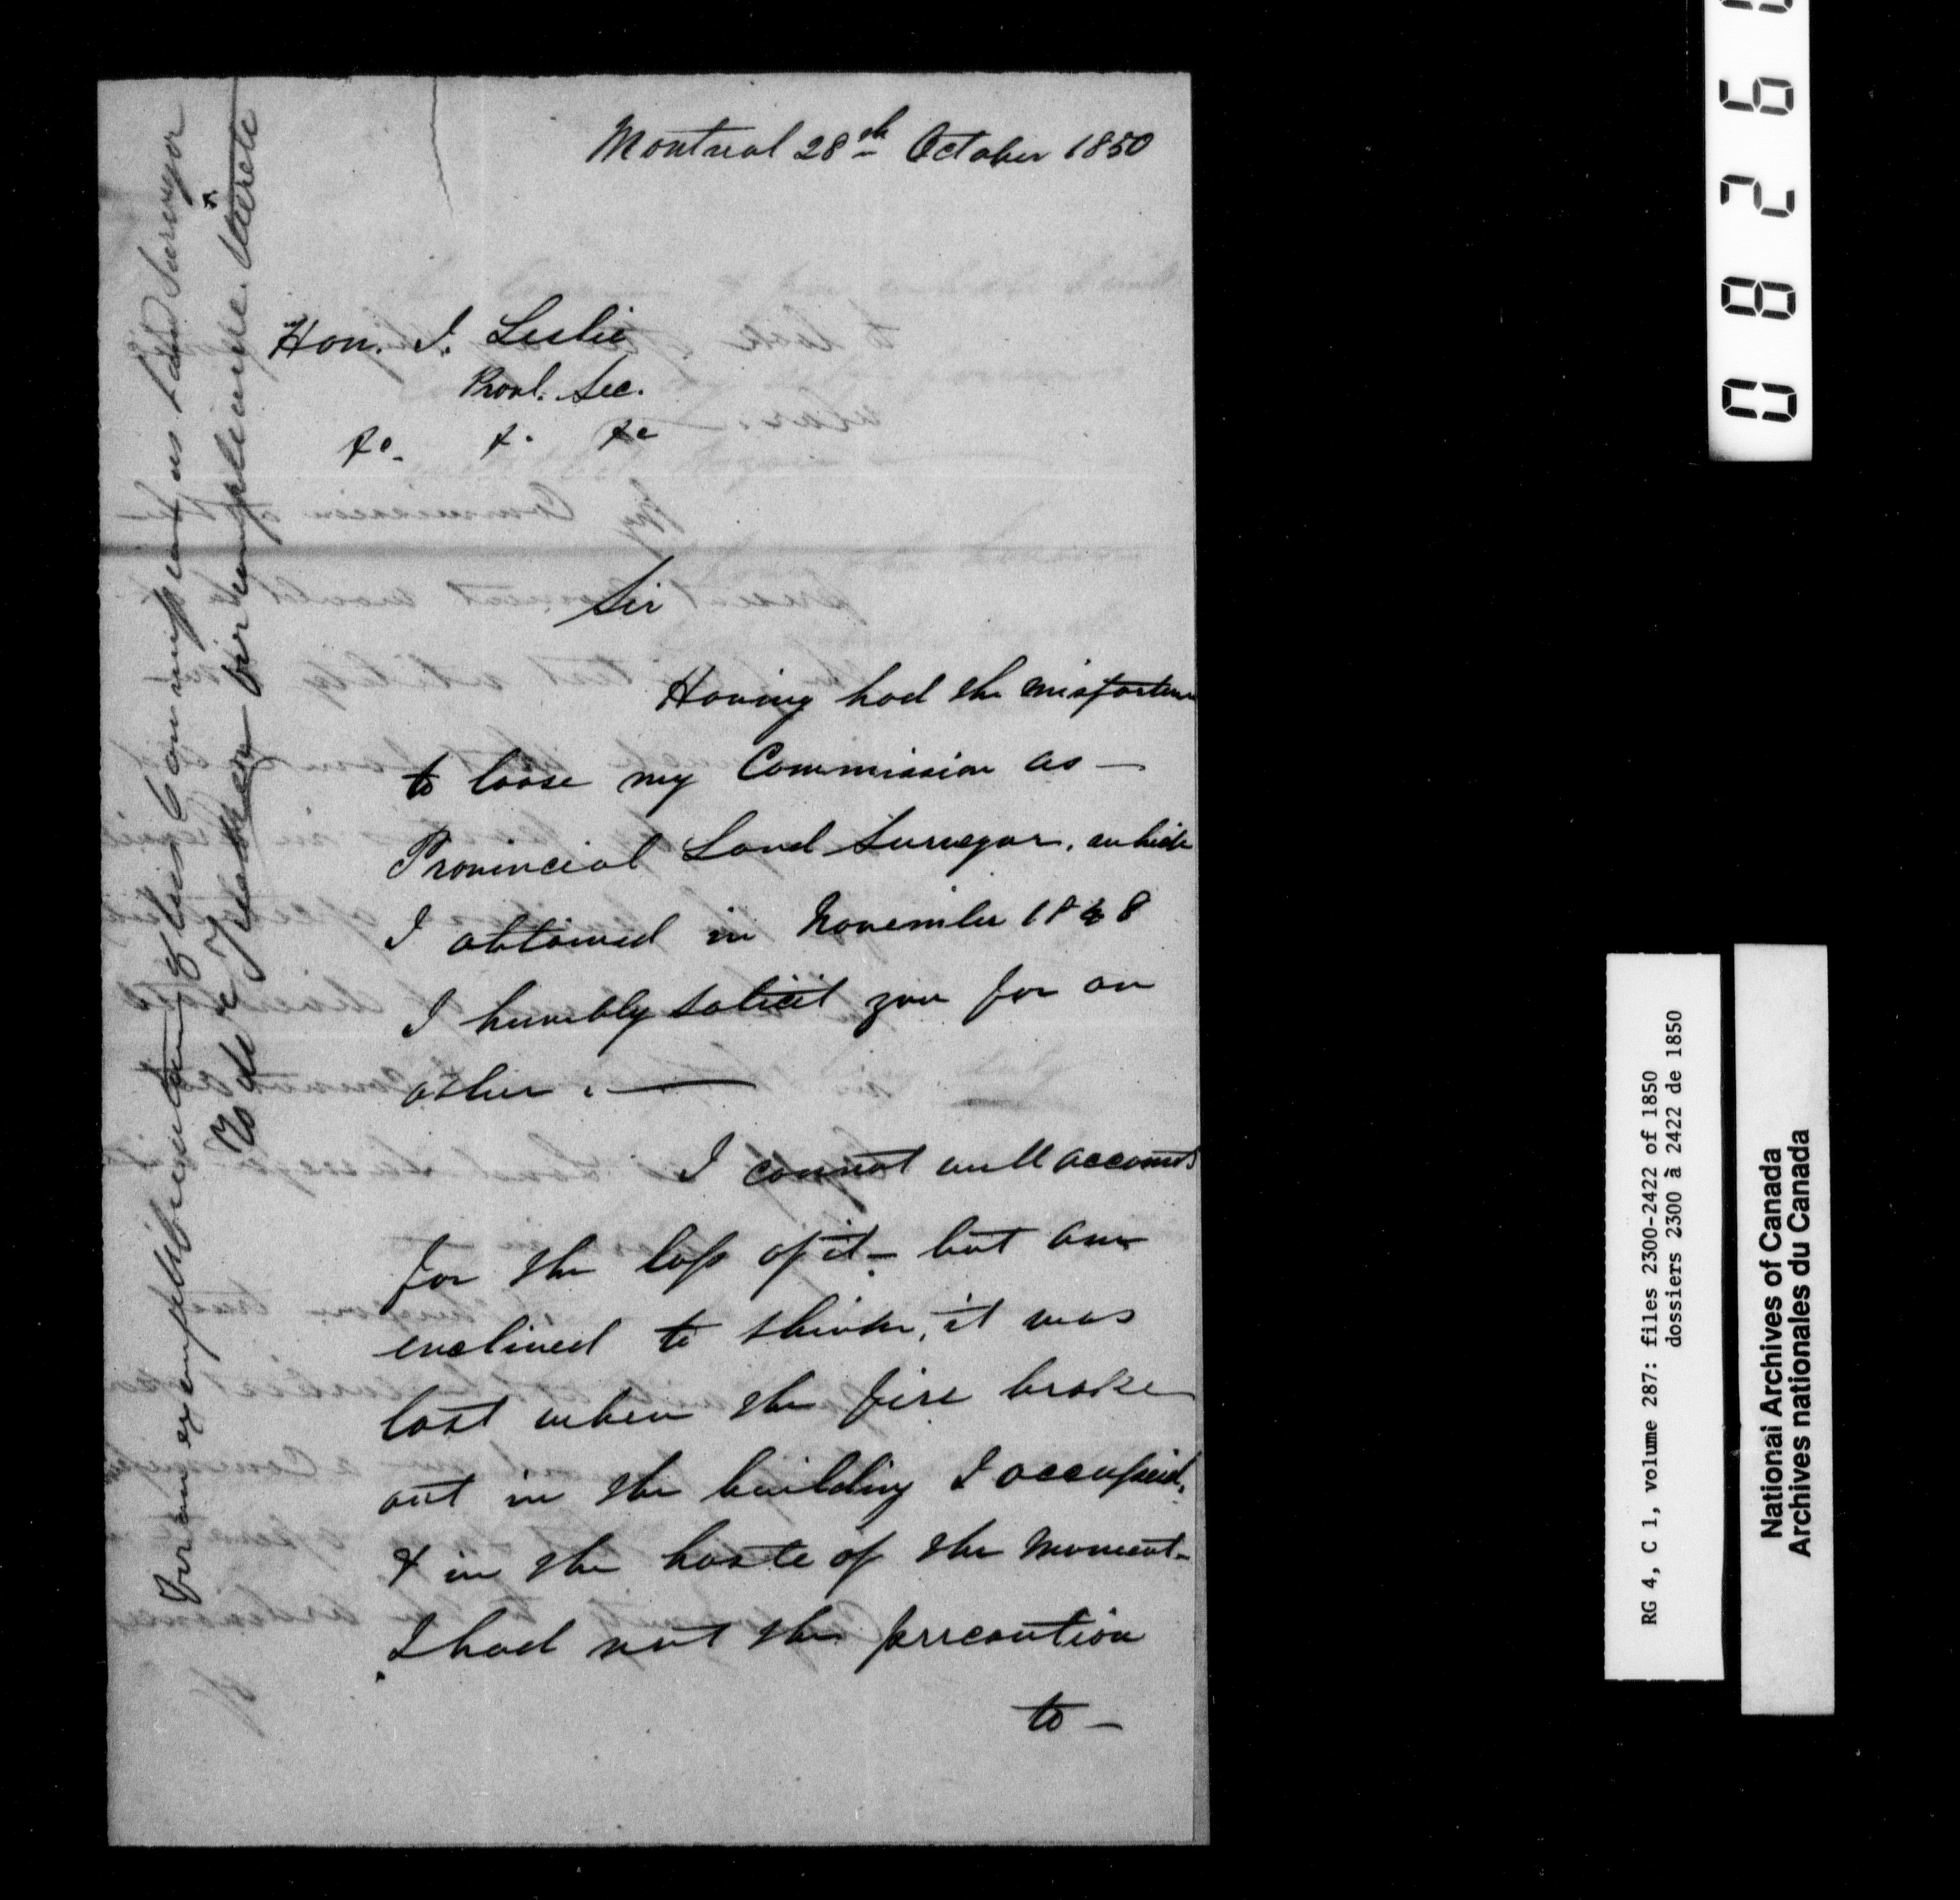 Montreal 28th October 1850
Hon. J. Leslie
Provl. Sec.
&c. &. &c
Sir
Having had the misfortune
to loose my Commission as —
Provincial Land Surveyor, which
I obtained in November 1848
I humbly solicit you for an
other. —
I cannot well account
for the loss of it — but am
enclined to think, it was
lost when the fire broke
out in the building I occupied,
& in the haste of the moment —
I had not the precaution
to —
For an exemplification of his Commission as Land Surveyor
For compliance. Secrete
0826
RG 4, C 1, volume 287: files 2300-2422 of 1850
dossiers 2300 à 2422 de 1850
National Archives of Canada
Archives nationales du Canada